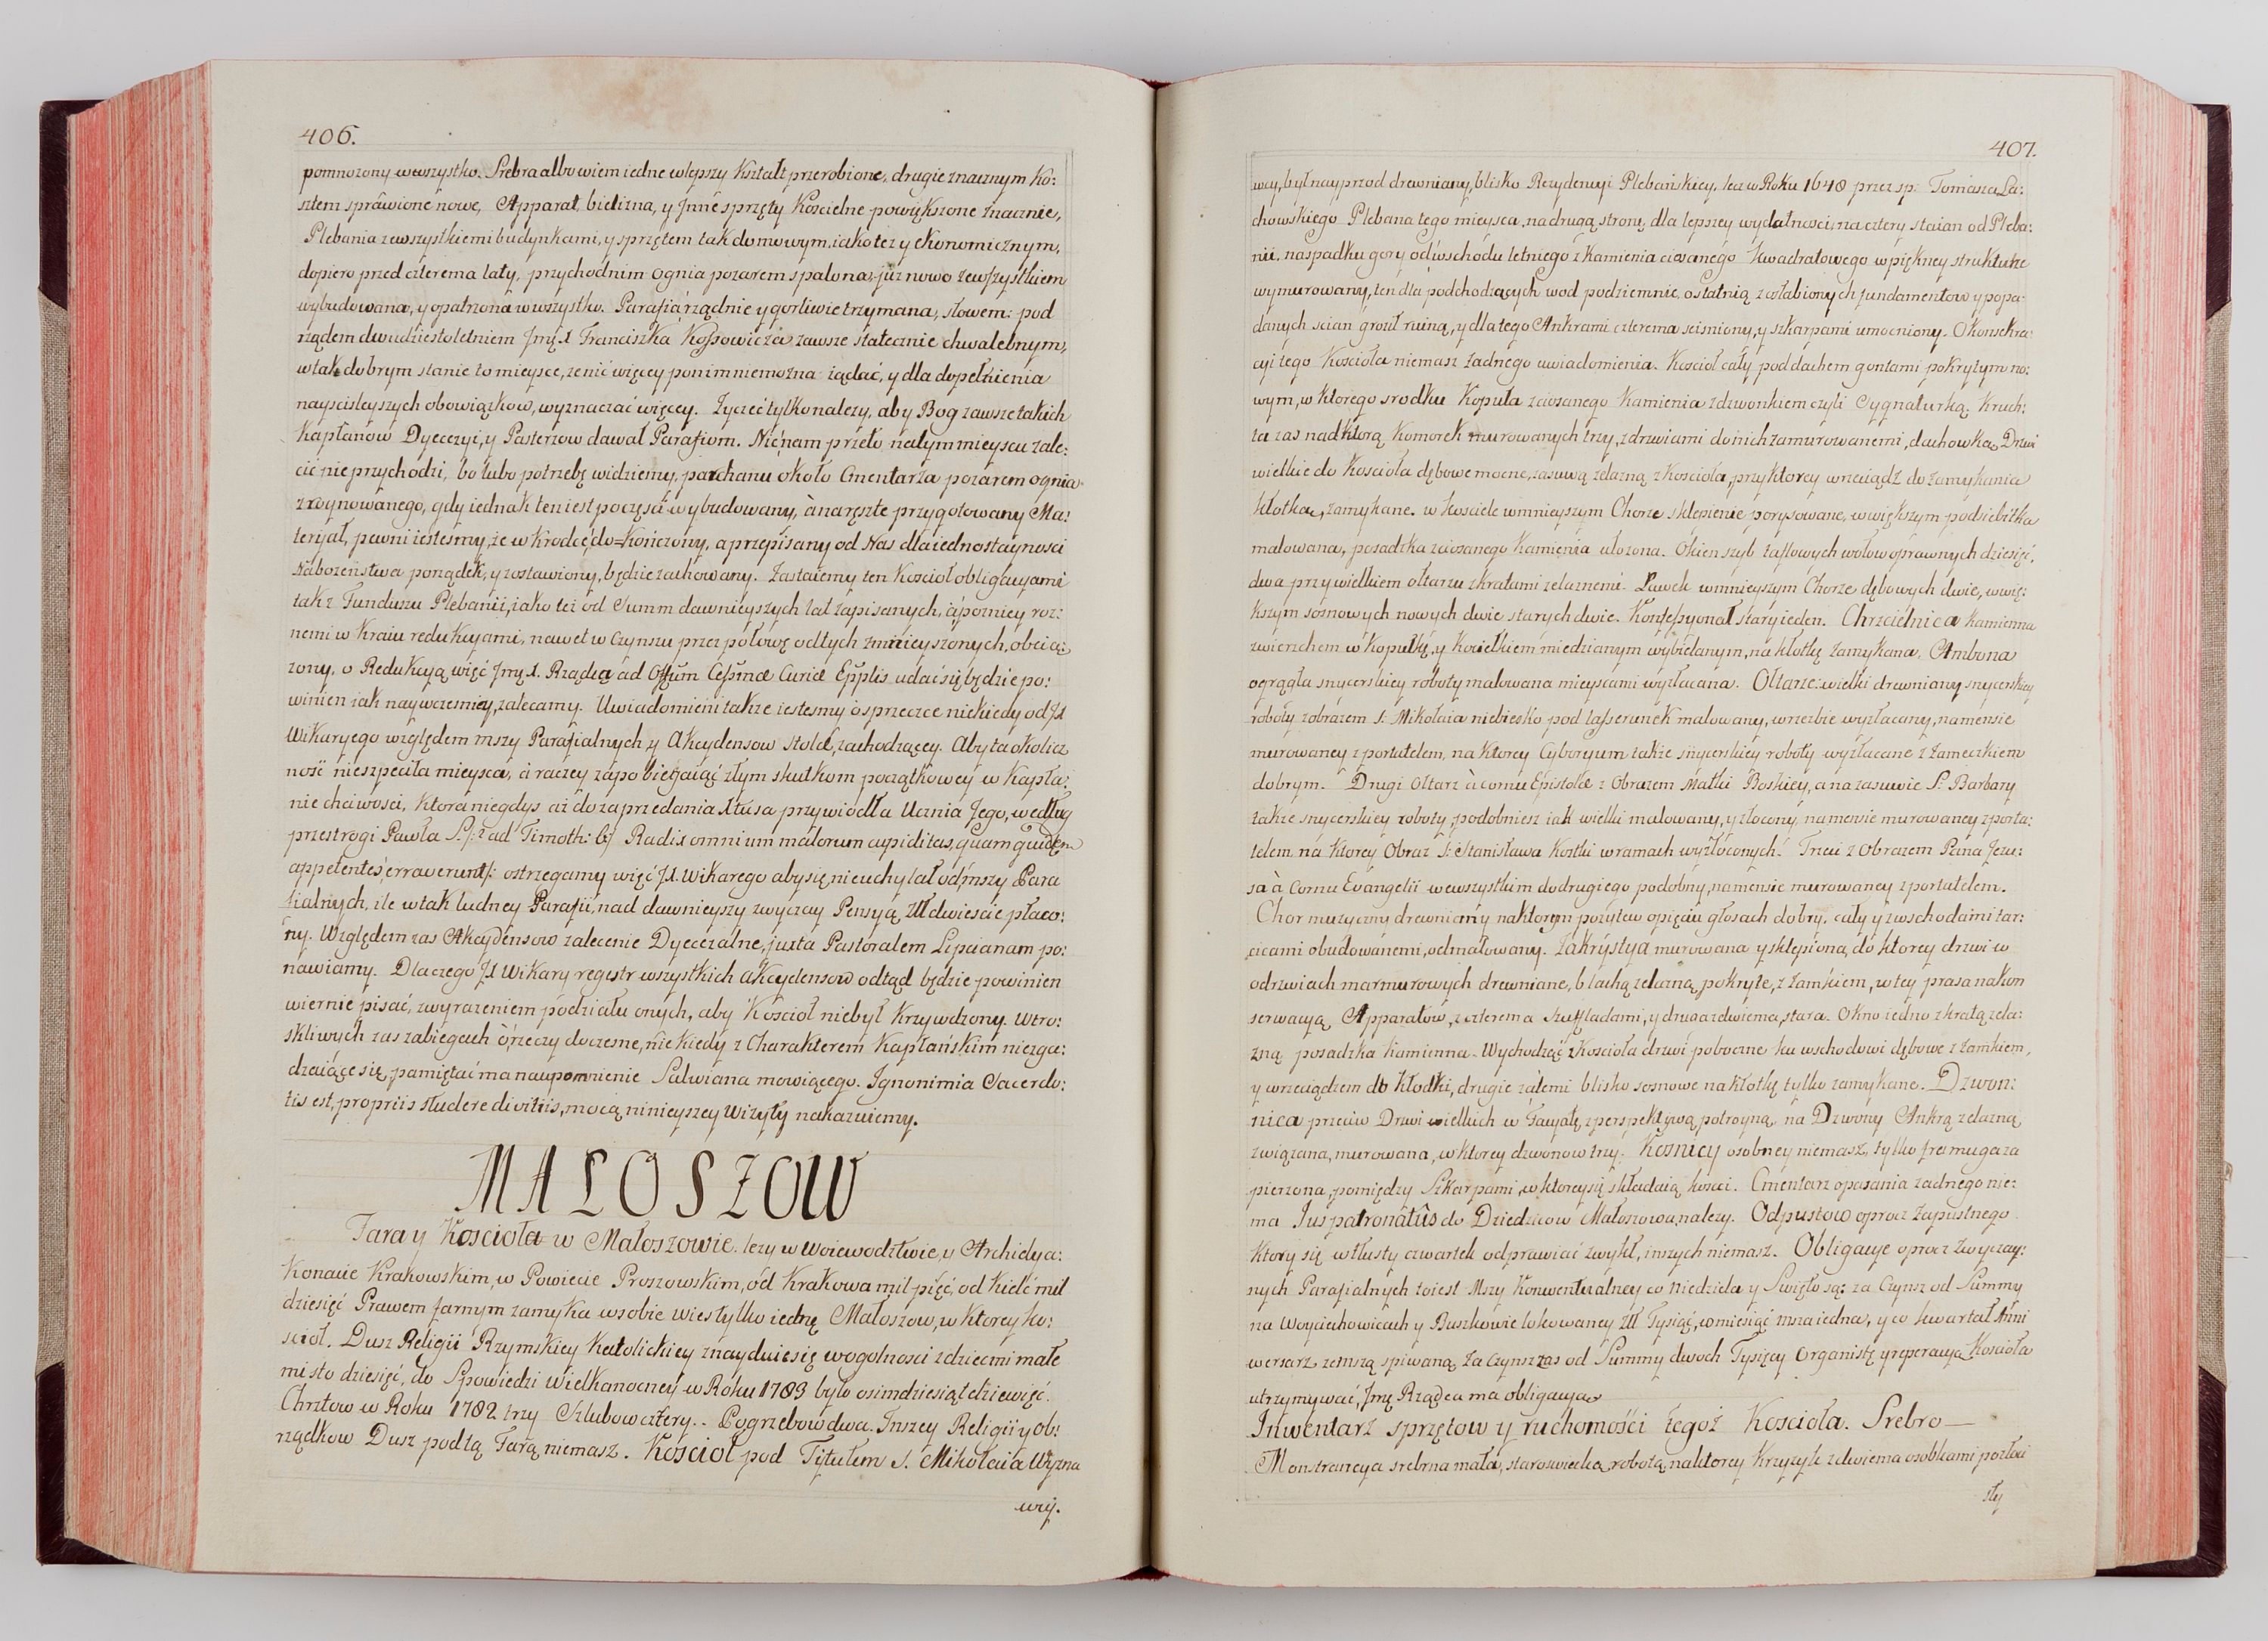 406.
pomnozony wewszystko. Srebra albowiem iedne w lepszy Kształt przerobione, drugie znacznym Ko:
sztem sprawione nowe, Apparat, bielizna, y Jnne sprzęty Koscielne powiększone znacznie,
Plebania zewszystkiemi budynkami, y sprzętem tak domowym, iako tez y ekonomicznym,
dopiero przed czterema laty, przychodnim ognia pozarem spalona, juz nowo zewszystkiem
wybudowana, y opatrzona wwszystko. Parafia rządnie y gorliwie trzymana, słowem: pod
rządem dwudziestoletniem Jmę X Franciszka Kossowicza, zawsze statecznie chwalebnym,
w tak dobrym stanie to mieysce, ze nic więcey po nim niemozna ządać, y dla dopełnienia
nayscisleyszych obowiązkow, wyznaczać więcey. Zyczeć tylko nalezy, aby Bog zawsze takich
Kapłanow Dyecezyi, y Pasterzow dawał Parafiom. Nic nam przeto na tym mieyscu zale:
cić nie przychodzi, bo lubo potrzebę widziemy, parchanu około Cmentarza pozarem ognia
zruynowanego, gdy iednak ten iest poczęsci wybudowany, à na reszte przygotowany Ma:
teryał, pewni iestesmy, ze w krodce do=Kończony, a przepisany od Nas dla iednostayności
Nabozeństwa porządek, y zostawiony, będzie zachowany. Zastaiemy ten Kosciol obligacyami
tak z Funduszu Plebanii, iako tez od Summ dawnieyszych lat zapisanych, à pozniey roz:
nemi w Kraiu redukcyami, nawet w Czynszu przez połowę od tych zmnieyszonych, obcią:
zony, o Redukcyą więc Jmę X. Rządca ad Offium Celsmæ Curiæ Epplis udać się będzie po:
winien iak naywczesniey, zalecamy. Uwiadomieni takze iestesmy o sprzeczce niekiedy od JX
Wikaryego względem mszy Parafialnych y Akcydensow stolæ, zachodzącey. Aby ta okolicz
ność nieszpeciła mieysca, ci raczey zapobiegaiąc złym skutkom początkowey w Kapła:
nie chciwosci, Ktora niegdys aż do zaprzedania Xtusa przywiodła Ucznia Jego, według
przestrogi Pawła S. /: 1 ad Timoth: 6/ Radix omnium malorum cupiditas, quam quidem
appetentes erraverunt/: ostrzegamy więc JX. Wikarego aby się nieuchylał od mszy Para
fialnych, ile w tak ludney Parafii, nad dawnieyszy zwyczay Pensyą, Złł dwiescie płaco:
ny. Względem zas Akcydensow zalecenie Dyecezalne, juxta Pastoralem Lipscianam po:
nawiamy. Dlaczego JX Wikary regestr wszystkich akcydensow odtąd będzie powinien
wiernie pisać, z wyrazeniem podziału onych, aby Kosciol niebył Krzywdzony. W tro:
skliwych zas zabiegach o rzeczy doczesne, nie kiedy z Charakterem Kapłańskim niezga:
dzaiące się, pamiętać ma na upomnienie Salwiana mowiącego. Ignonimia Sacerdo:
tis est, propriis studere divitiis, mocą ninieyszey Wizyty nakazuiemy.
MAŁOSZOW
Fara y Kosciola w Małoszowie. lezy w Woiewodztwie, y Archidya:
Konacie Krakowskim, w Powiecie Proszowskim, od Krakowa mil pięć, od Kielc mil
dziesięć Prawem farnym zamyka w sobie wies tylko iednę Małoszow, w Ktorey ko:
scioł. Dusz Religii Rzymskiey Katolickiey znayduie się w ogolnosci z dziecmi małe
mi sto dziesięć, do Spowiedzi Wielkanocney w Roku 1783 było osimdziesiąt dziewięć.
Chrztow w Roku 1782 trzy Szlubow cztery.. Pogrzebow dwa. Inszey Religii y ob:
rządkow Dusz pod tą Farą niemasz. Kosciol pod Tytułem S. Mikołaia Wyzna
wcy.
407.
wcy, był nayprzod drewniany, blisko Rezydencyi Plebańskiey, lecz w Roku 1648 przez sp: Tomasza La:
chowskiego Plebana tego mieysca, na drugą stronę, dla lepszey wydatnosci, na cztery staian od Pleba:
nii, na spadku gory od wschodu letniego z kamienia ciosanego Kwadratowego w piękney strukturze
wymurowany, ten dla podchodzących wod podziemnie, ostatnią z osłabionych fundamentow y popa:
danych scian groził ruiną, y dla tego Ankrami czterema scisniony, y szkarpami umocniony. O konsekra:
cyi tego Kosciola niemasz żadnego uwiadomienia. Kosciol cały pod dachem gontami pokrytym no:
wym, w ktorego srodku Kopuła z ciosanego Kamienia z dzwonkiem czyli Sygnaturką. Kruch:
ta zas nad ktorą Komorek murowanych trzy, z drzwiami do nich zamurowanemi, dachowką. Drzwi
wielkie do Kosciola dębowe mocne, zasuwą zelazną z Kosciola, przy ktorey wrzeciądz do zamykania
kłotką, zamykane. w kosciele w mnieyszym Chorze sklepienie porysowane, w większym podsiebitka
malowana, posadzka z ciosanego Kamienia ułozona. Okien szyb taflowych w ołow oprawnych dziesięć,
dwa przy wielkiem ołtarzu z kratami zelaznemi. Ławek w mnieyszym Chorze dębowych dwie, w wię:
kszym sosnowych nowych dwie starych dwie. Konfessyonał stary ieden. Chrzcielnica kamienna
zwierzchem w Kopułkę, y Kociełkiem miedzianym wybielanym, na kłotkę zamykana. Ambona
ogrągła snycerskiey roboty malowana mieyscami wyzłacana. Ołtarze: wielki drewniany snycerskiey
roboty z obrazem S: Mikołaia niebiesko pod lasserunek malowany, w rzezbie wyzłacany, na mensie
murowaney z portatelem, na ktorey Cyboryum takze snycerskiey roboty wyzłacane z zameczkiem
dobrym. Drugi Ołtarz à cornu Epistolæ z Obrazem Matki Boskiey, a na zasuwie S. Barbary
takze snycerskiey roboty, podobniesz iak wielki malowany, y złocony, na mensie murowaney z porta:
telem na ktorey Obraz S: Stanisława Kostki w ramach wyzłoconych. Trzeci z Obrazem Pana Jezu:
sa à Cornu Evangelii wewszystkim do drugiego podobny, na mensie murowaney z portatelem.
Chor muzyczny drewniany na ktorym pozytew o pięciu głosach dobry, cały y z wschodami tar:
cicami obudowanemi, odmalowany. Zakrystya murowana y sklepiona, do ktorey drzwi w
odrzwiach marmurowych drewniane, blachą zelazną pokryte, z zamkiem, w tey prasa na kon
serwacyą Apparatow, z czterema szufladami, y druga z dwiema, stara. Okno iedno z kratą zela:
zną posadzka kamienna. Wychodząc z Kosciola drzwi poboczne ku wschodowi dębowe z zamkiem,
y wrzeciądzem do kłodki, drugie za temi blisko sosnowe na kłotkę tylko zamykane. Dzwon:
nica przeciw Drzwi wielkich w Facyatę z perspektywą potroyną, na Dzwony Ankrą zelazną
związana, murowana, w ktorey dzwonow trzy. Kosnicy osobney niemasz, tylko framuga za
pierzona, pomiędzy Szkarpami, w ktorey się składaią kosci. Cmentarz opasania zadnego nie:
ma Jus patronatûs do Dziedzicow Małoszowa, nalezy. Odpustow oprocz Zapustnego
ktory się w tłusty czwartek odprawiać zwykł, inszych niemasz. Obligacye oprocz zwyczay:
nych Parafialnych toiest Mszy Konwentualney co niedziela y Swięto są: za Czynsz od Summy
na Woyciechowicach y Buszkowie lokowaney Złł Tysiąc, co miesiąc msza iedna, y co kwartał Anni
wersarz ze mszą spiwaną, za Czynsz zas od Summy dwoch Tysięcy Organistę y reperacyą Kosciola
utrzymywać, Jmę Rządca ma obligacyą.
Inwentarz sprzętow y ruchomości tegoż Kosciola. Srebro—
Monstrancya srebrna mała, staroswiecką robotą, na ktorey Krzyzyk z dwiema osobkami pozłoci
sty